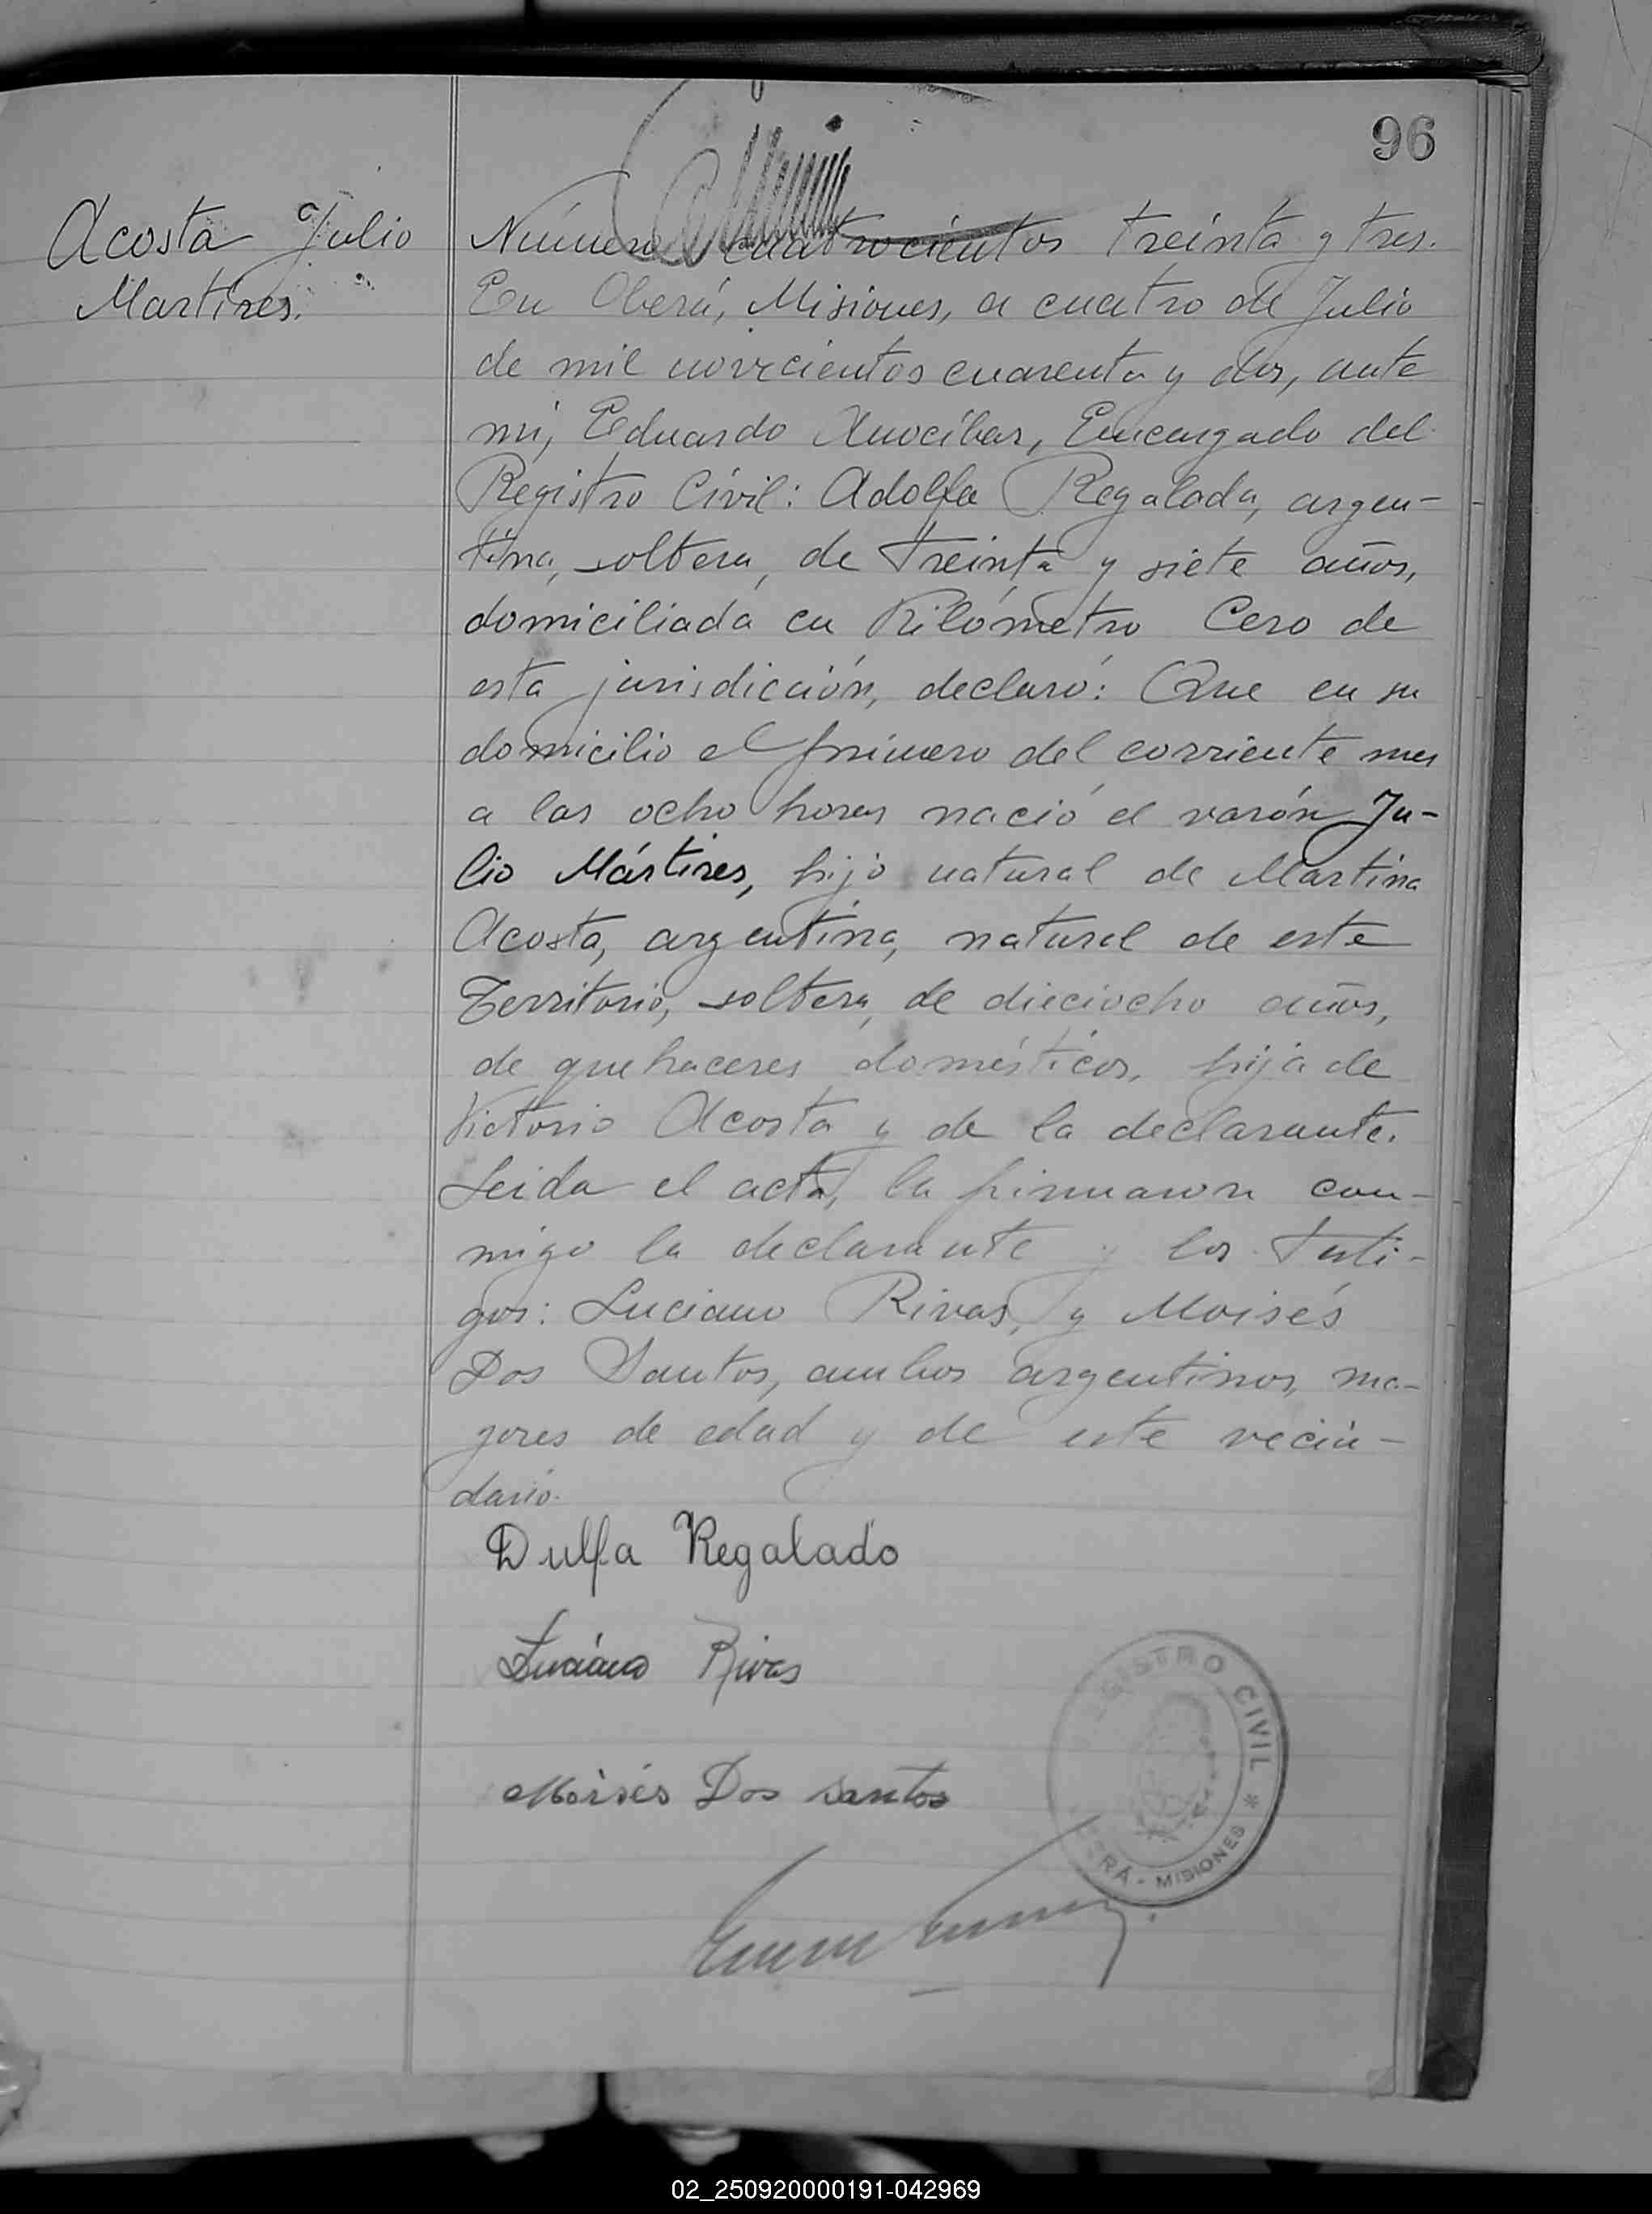 96
Acosta Julio
Martires.
Número cuatrocientos treinta y tres.
En Oberá, Misiones, a cuatro de Julio
de mil novecientos cuarenta y dos, ante
mi, Eduardo Encargado del
Registro Civil: Adolfa Regalada, argen-
tina, soltera, de treinta y siete años,
domiciliada en Kilómetro Cero de
esta jurisdicción, declaró: Que en su
domicilio el primero del corriente mes
a las ocho horas nació el varón Ju-
lio Mártires, hijo natural de Martina
Acosta, argentina, natural de este
Territorio, soltera, de dieciocho años,
de quehaceres domésticos, hija de
Victorio Acosta y de la declarante.
Leida el acta, la firmaron con-
migo la declarante y los testi-
gos: Luciano Rivas, y Moisés
Dos Santos, ambos argentinos, ma-
yores de edad y de este vecin-
dario.
Dulfa Regalado
Luciano Rivas
Moisés Dos santos
REGISTRO CIVIL *
ERÁ - MISIONES
02_250920000191-042969